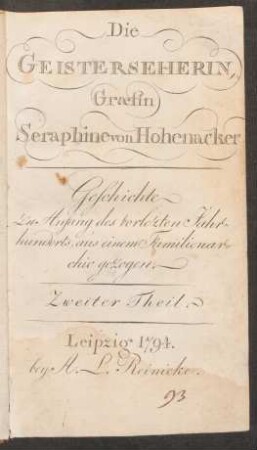 Die
GEISTERSEHERIN,
Græfin
Seraphine von Hohenacker
Geschichte
Zu Anfang des vorlezten Jahr-
hunderts, aus einem Familienar-
chiv gezogen.
Zweiter Theil.
Leipzig 1794.
bey A. L. Reinicke.
93